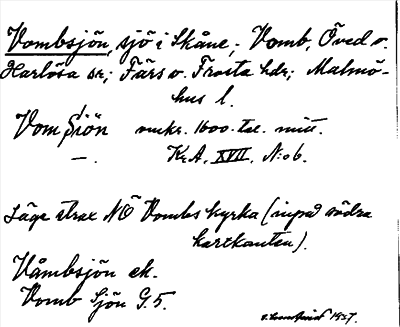 Vombsjön, sjö i Skåne; Vomb, Öved o.
Harlösa sr; Färs o. Frosta hdr; Malmö-
hus l.
Vom Siön omkr. 1600-tal. mitt.
—. Kr.A. XVII, N:o 6.
Läge strax NÖ Vombs kyrka (inpå södra
kartkanten).
Våmbsjön ek.
Vomb Sjön G.5.
1927.